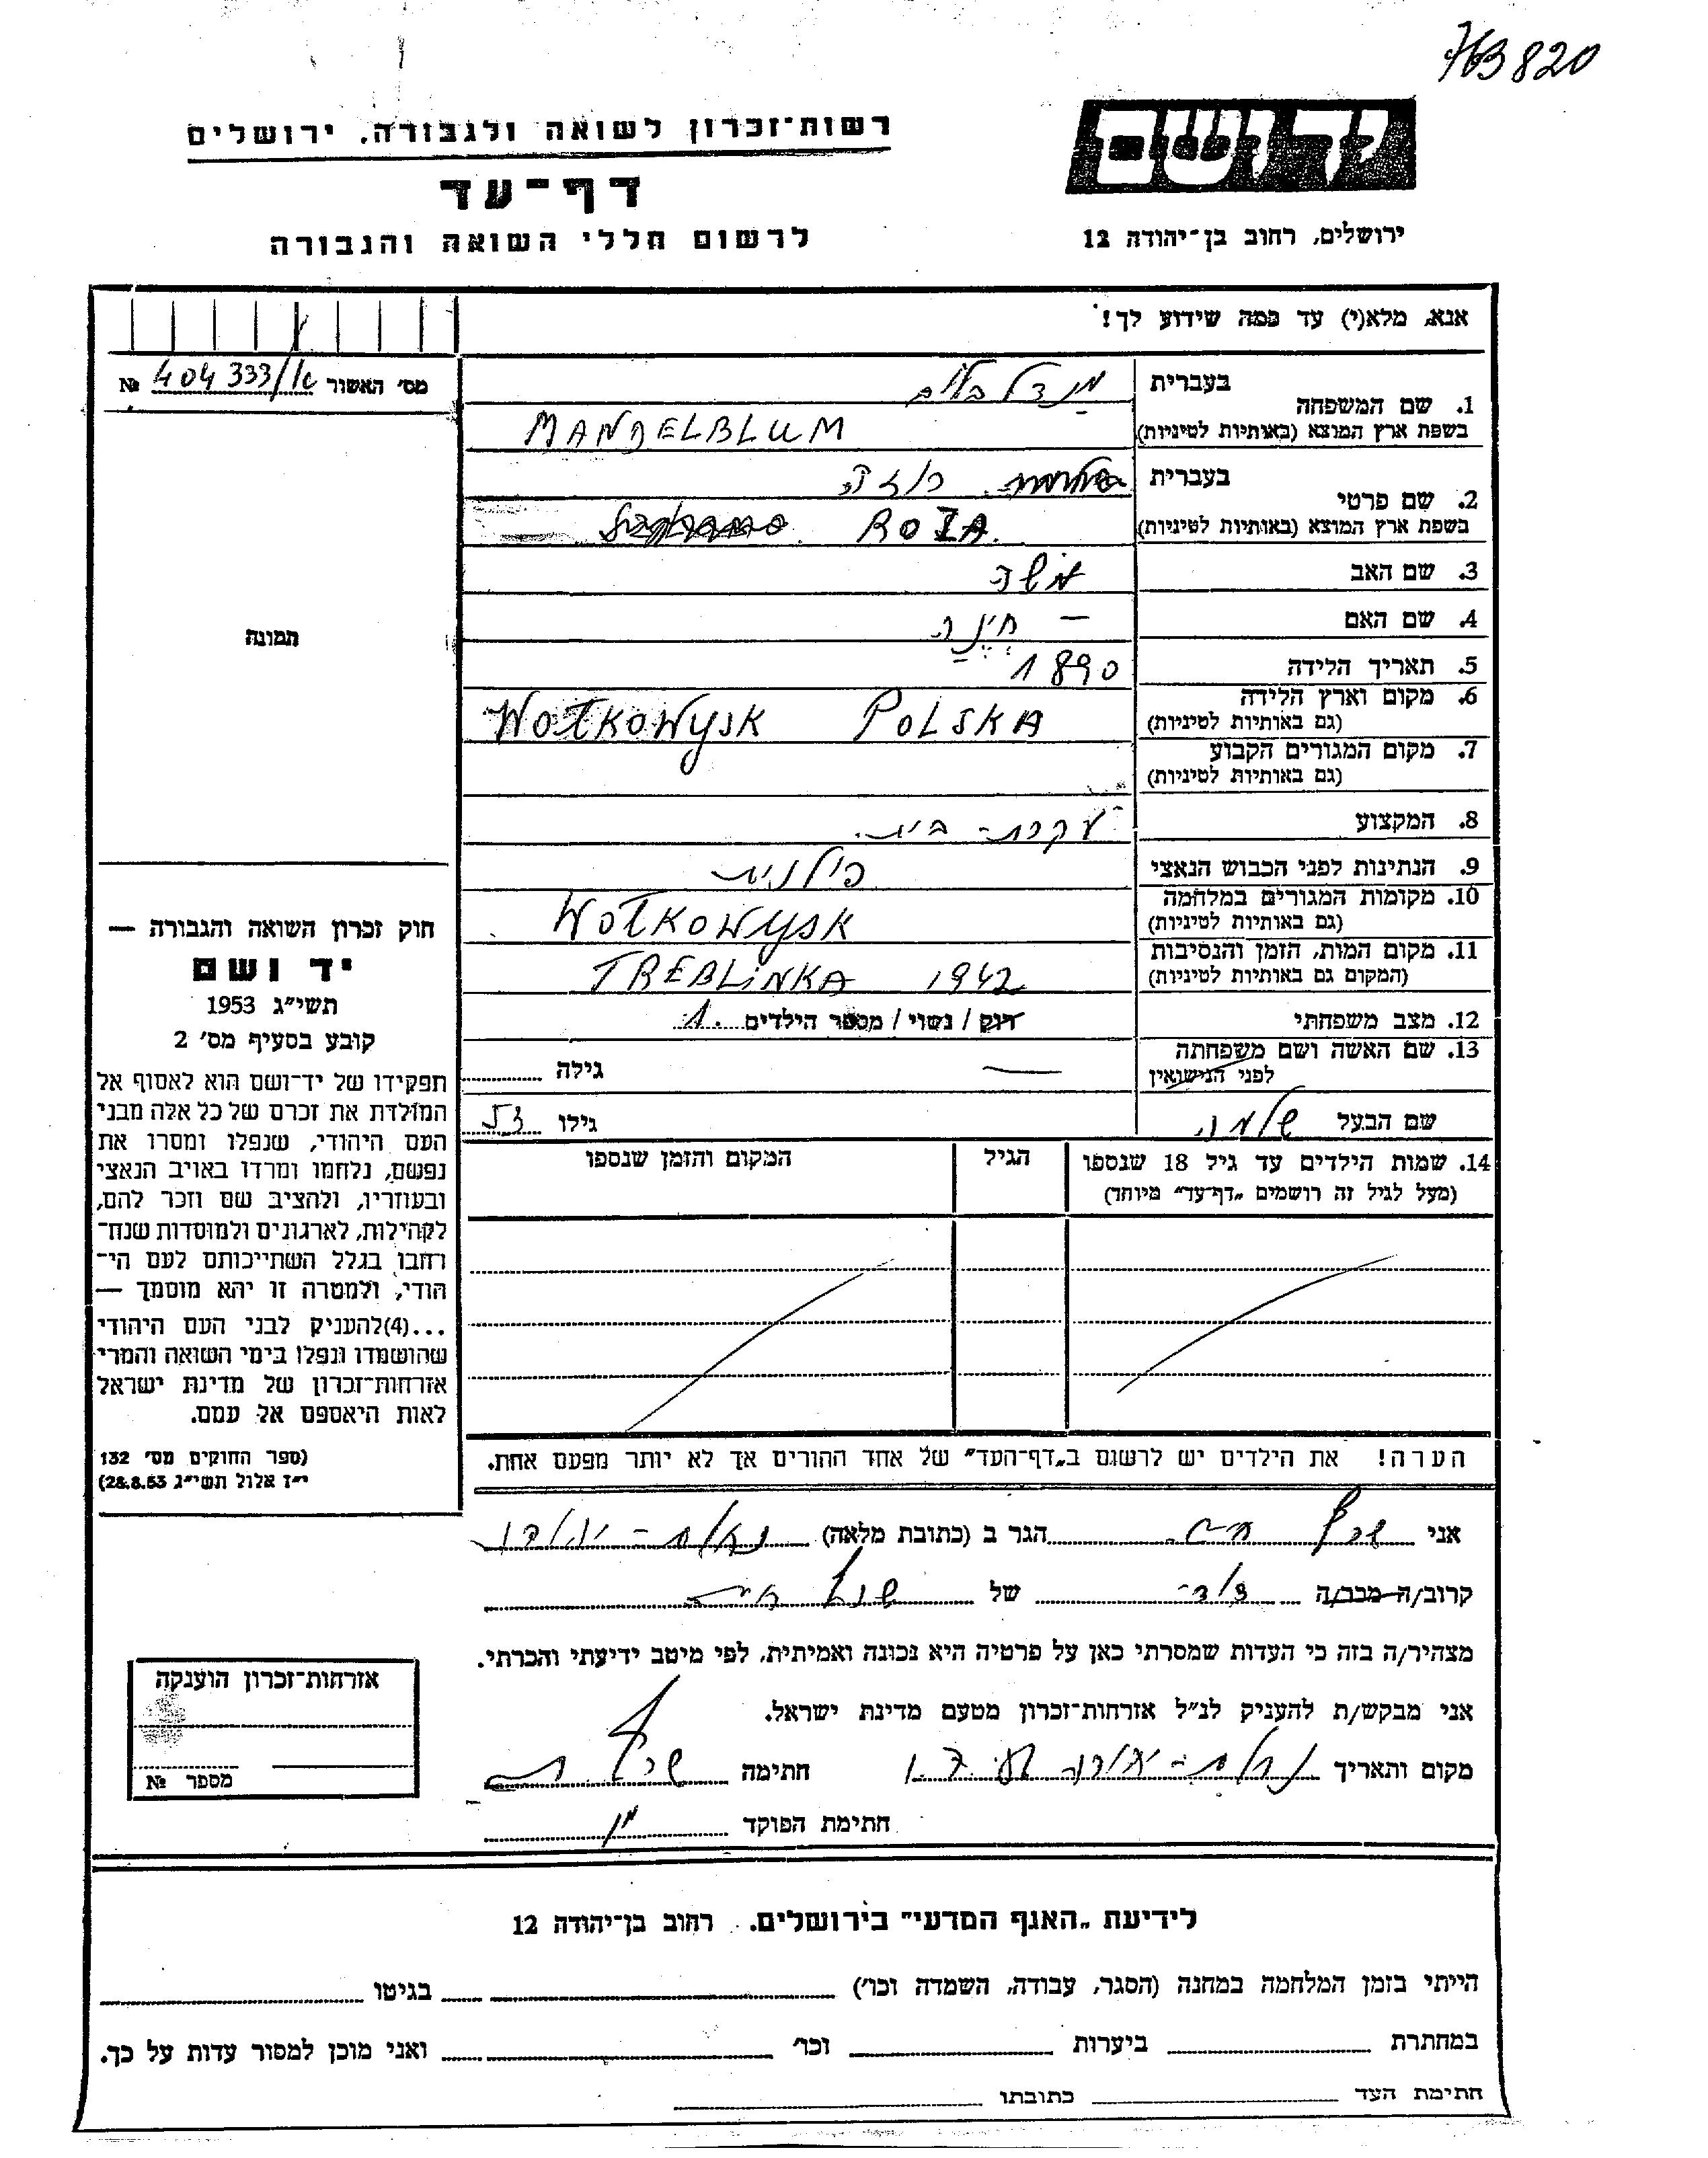 763820
רשות־זכרון לשואה ולגבורה. ירושלים
דף־עד
לרשום חללי השואה והגבורה
יד ושם
ירושלים, רחוב בן־יהודה 12
אנא, מלא(י) עד כמה שידוע לך!
מס' האשור 404333/ № 
1. שם המשפחה
בעברית מנדלבלום
בשפת ארץ המוצא (באותיות לטיניות) MANDELBLUM
2. שם פרטי
בעברית רוזה
בשפת ארץ המוצא (באותיות לטיניות) ROZA.
3. שם האב משה
4. שם האם – חינה
5. תאריך הלידה 1890
6. מקום וארץ הלידה
(גם באותיות לטיניות) WOŁKOWYSK POLSKA
7. מקום המגורים הקבוע
(גם באותיות לטיניות)
8. המקצוע עקרת-בית.
9. הנתינות לפני הכבוש הנאצי פולנית
10. מקומות המגורים במלחמה
(גם באותיות לטיניות) WOŁKOWYSK
11. מקום המות, הזמן והנסיבות
(המקום גם באותיות לטיניות) TREBLINKA 1942
12. מצב משפחתי רוק / נשוי / מספר הילדים 1.
13. שם האשה ושם משפחתה
לפני הנישואין — גילה
שם הבעל שלמה גילו 53
14. שמות הילדים עד גיל 18 שנספו
(מעל לגיל זה רושמים „דף־עד" מיוחד)
הגיל
המקום והזמן שנספו
הערה! את הילדים יש לרשום ב„דף־העד" של אחד ההורים אך לא יותר מפעם אחת.
תמונה
חוק זכרון השואה והגבורה —
יד ושם
תשי"ג 1953
קובע בסעיף מס' 2
תפקידו של יד־ושם הוא לאסוף אל
המולדת את זכרם של כל אלה מבני
העם היהודי, שנפלו ומסרו את
נפשם, נלחמו ומרדו באויב הנאצי
ובעוזריו, ולהציב שם וזכר להם,
לקהילות, לארגונים ולמוסדות שנח־
רחבו בגלל השתייכותם לעם הי־
הודי, ולמטרה זו יהא מוסמך —
...(4)להעניק לבני העם היהודי
שהושמדו ונפלו בימי השואה והמרי
אזרחות־זכרון של מדינת ישראל
לאות היאספם אל עמם.
(ספר החוקים מס' 132
י"ז אלול תשי"ג 28.8.53)
אני הגר ב (כתובת מלאה)
קרוב/ה מכר/ה של
מצהיר/ה בזה כי העדות שמסרתי כאן על פרטיה היא נכונה ואמיתית, לפי מיטב ידיעתי והכרתי.
אני מבקש/ת להעניק לנ"ל אזרחות־זכרון מטעם מדינת ישראל.
מקום ותאריך חתימה
חתימת הפוקד
אזרחות־זכרון הוענקה
מספר №
לידיעת „האגף המדעי" בירושלים. רחוב בן־יהודה 12
הייתי בזמן המלחמה במחנה (הסגר, עבודה, השמדה וכו') בגיטו
במחתרת ביערות וכו' ואני מוכן למסור עדות על כך.
חתימת העד כתובתו